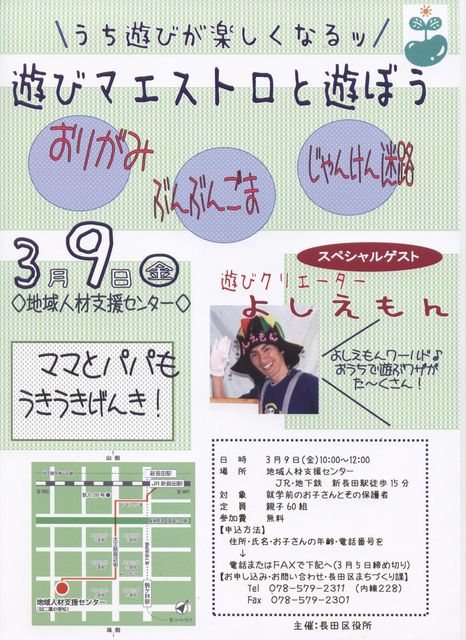 \うち遊びが楽しくなるッ/
遊びマエストロと遊ぼう
おりがみ
ぶんぶんごま
じゃんけん迷路
3月9日㊎
◇地域人材支援センター◇
スペシャルゲスト
遊びクリエーター
よしえもん
よしえもん
よしえもんワールド♪
おうちで遊ぶワザが
た〜くさん!
ママとパパも
うきうきげんき!
山側
新長田駅
JR 新長田駅
鉄人28号
大正筋商店街
駒ヶ林駅
地域人材支援センター
(旧二葉小学校)
海側
日 時 3月9日(金)10:00〜12:00
場 所 地域人材支援センター
JR・地下鉄 新長田駅徒歩15分
対 象 就学前のお子さんとその保護者
定 員 親子60組
参加費 無料
【申込方法】
住所・氏名・お子さんの年齢・電話番号を
↓
電話またはFAXで下記へ(3月5日締め切り)
【お申し込み・お問い合わせ・長田区まちづくり課】
Tel 078-579-2311 (内線228)
Fax 078-579-2301
主催:長田区役所